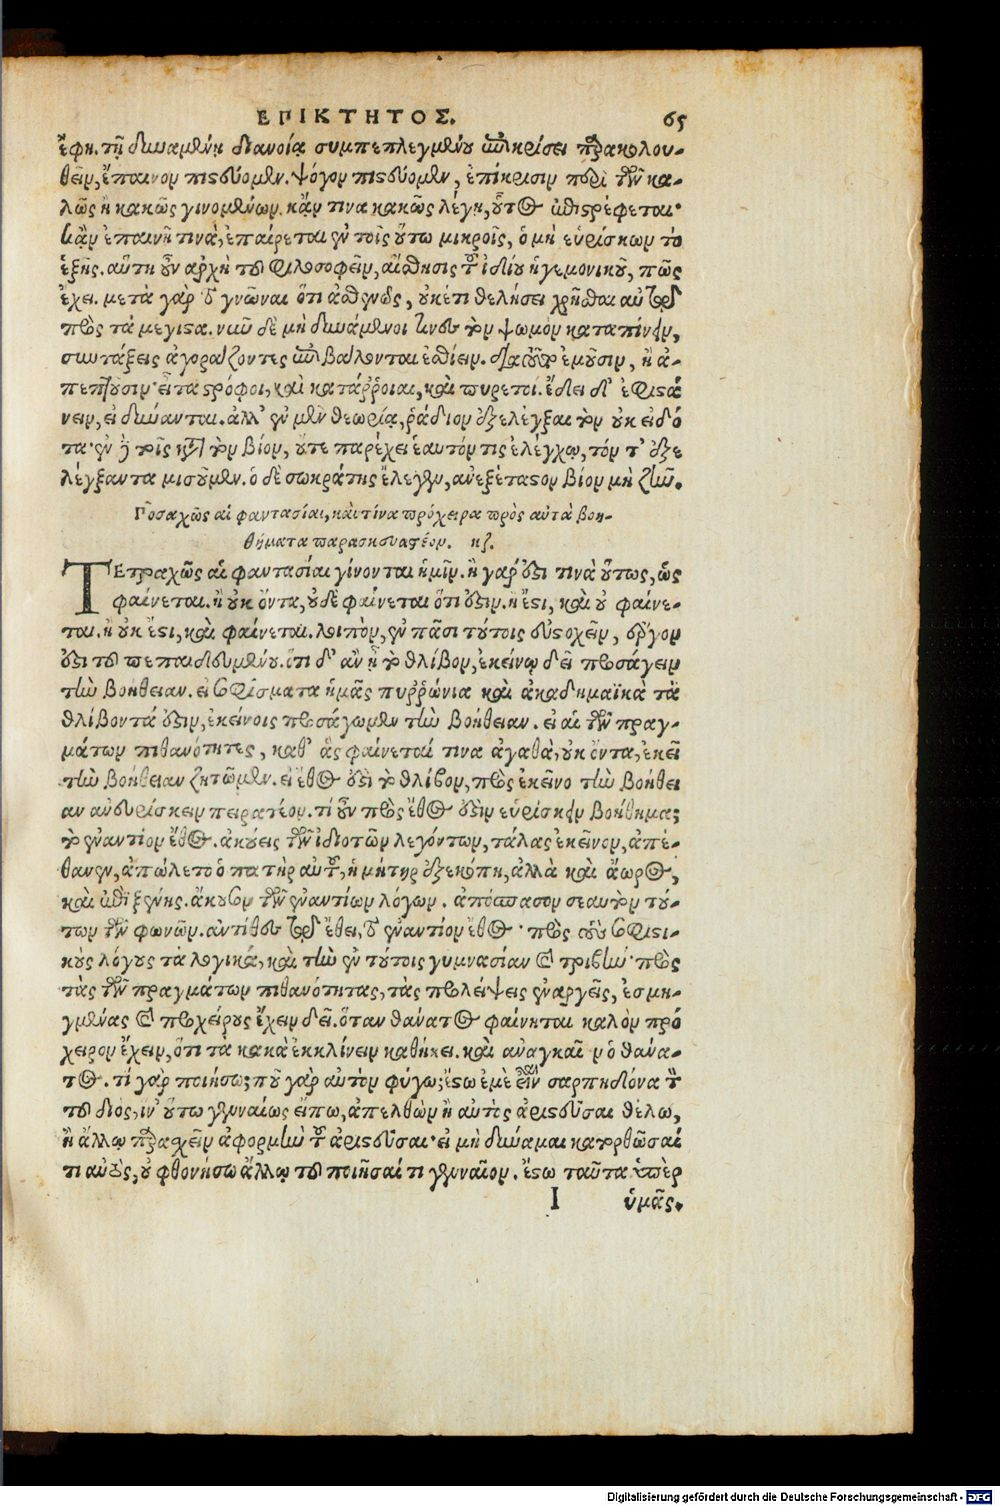 ΕΠΙΚΤΗΤΟΣ. 65
ἔφη. τῇ δυναμένῃ διανοίᾳ συμπεπλεγμένου ἐπικρίσει παρακολου-
θεῖν, ἔπαινον πιστεύομεν. ψόγον πιστεύομεν, ἐπίκρισιν περὶ τῶν κα-
λῶς ἢ κακῶς γινομένων. κἄν τινα κακῶς λέγῃ, οὗτος ἐπιστρέφεται·
κἂν ἐπαινῇ τινὰ, ἐπαίρεται ἐν τοῖς οὕτω μικροῖς, ὁ μὴ εὑρίσκων τὸ
ἑξῆς. αὕτη οὖν ἀρχὴ τοῦ φιλοσοφεῖν, αἴσθησις τοῦ ἰδίου ἡγεμονικοῦ, πῶς
ἔχει. μετὰ γὰρ τὸ γνῶναι ὅτι ἀσθενῶς, οὐκέτι θελήσει χρῆσθαι αὐτῷ
πρὸς τὰ μεγιστα. νῦν δὲ μὴ δυνάμενοι τὸν ψωμὸν καταπίνειν,
συντάξεις ἀγοράζοντες ἐπιβάλονται ἐσθίειν. διὰ τοῦτο ἐμοῦσιν, ἢ ἀ-
πεπτοῦσιν· εἶτα στρόφοι, καὶ κατάρροιαι, καὶ πυρετοί. ἔδει δ' ἐφιστά
νειν, εἰ δύνανται. ἀλλ' ἐν μὲν θεωρίᾳ, ῥάδιον ἐξελέγξαι τὸν οὐκ εἰδό
τα· ἐν δὲ τοῖς κατὰ τὸν βίον, οὔτε παρέχει ἑαυτόν τις ἐλέγχῳ, τόν τ' ἐξε
λέγξαντα μισοῦμεν. ὁ δὲ σωκράτης ἔλεγεν, ἀνεξέταστον βίον μὴ ζῆν.
Ποσαχῶς αἱ φαντασίαι, καὶ τίνα πρόχειρα πρὸς αὐτὰ βοη-
θήματα παρασκευαστέον. κζ.
ΤΕτραχῶς αἱ φαντασίαι γίνονται ἡμῖν. ἢ γάρ ἐστι τινὰ οὕτως, ὡς
φαίνεται. ἢ οὐκ ὄντα, οὐδὲ φαίνεται ὅτι ἐστιν. ἢ ἔστι, καὶ οὐ φαίνε-
ται. ἢ οὐκ ἔστι, καὶ φαίνεται. λοιπὸν, ἐν πᾶσι τούτοις εὐστοχεῖν, ἔργον
ἐστι τοῦ πεπαιδευμένου. ὅτι δ' ἂν ᾖ τὸ θλίβον, ἐκείνῳ δεῖ προσάγειν
τὴν βοήθειαν. εἰ σοφίσματα ἡμᾶς πυρρώνια καὶ ἀκαδημαϊκὰ τὰ
θλίβοντά ἐστιν, ἐκείνοις προσάγωμεν τὴν βοήθειαν. εἰ αἱ τῶν πραγ-
μάτων πιθανότητες, καθ' ἃς φαίνεταί τινα ἀγαθὰ, οὐκ ὄντα, ἐκεῖ
τὴν βοήθειαν ζητῶμεν. εἰ ἔθος ἐστὶ τὸ θλίβον, πρὸς ἐκεῖνο τὴν βοήθει
αν ἀνευρίσκειν πειρατέον. τί οὖν πρὸς ἔθος ἐστὶν εὑρίσκειν βοήθημα;
τὸ ἐναντίον ἔθος. ἀκούεις τῶν ἰδιοτῶν λεγόντων, τάλας ἐκεῖνον, ἀπέ-
θανεν, ἀπώλετο ὁ πατὴρ αὐτοῦ, ἡ μήτηρ ἐξεκόπη, ἀλλὰ καὶ ἄωρος,
καὶ ἐπὶ ξένης. ἄκουσον τῶν ἐναντίων λόγων. ἀπόσπασον σεαυτὸν τού-
των τῶν φωνῶν. ἀντίθες τῷ ἔθει, τὸ ἐναντίον ἔθος· πρὸς τοὺς σοφιστι-
κοὺς λόγους τὰ λογικά, καὶ τὴν ἐν τούτοις γυμνασίαν καὶ τριβὴν· πρὸς
τὰς τῶν πραγμάτων πιθανότητας, τὰς προλείψεις ἐναργεῖς, ἐσμη-
γμένας καὶ προχείρους ἔχειν δεῖ. ὅταν θάνατος φαίνηται καλὸν πρό
χειρον ἔχειν, ὅτι τὰ κακὰ ἐκκλίνειν καθήκει. καὶ ἀναγκαῖον ὁ θάνα-
τος. τί γὰρ ποιήσω; ποῦ γὰρ αὐτὸν φύγω; ἔστω ἐμὲ εἶναι σαρπηδόνα τὸν
τοῦ διὸς, ἵν' οὕτω γενναίως εἴπω, ἀπελθὼν ἢ αὐτὸς ἀριστεῦσαι θέλω,
ἢ ἄλλῳ παρασχεῖν ἀφορμὴν τοῦ ἀριστεῦσαι· εἰ μὴ δύναμαι κατορθῶσαί
τι αὐτὸς, οὐ φθονήσω ἄλλῳ τοῦ ποιῆσαί τι γενναῖον. ἔστω ταῦτα ὑπὲρ
I ὑμᾶς.
Digitalisierung gefördert durch die Deutsche Forschungsgemeinschaft - DFG